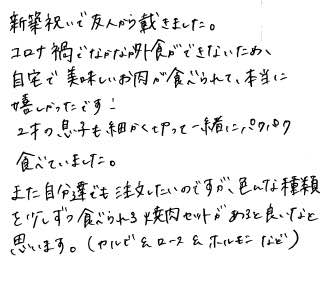 新築祝いで友人から戴きました。
コロナ禍でなかなか外食ができないため、
自宅で美味しいお肉が食べられて、本当に
嬉しかったです！
2才の息子も細かく切って一緒にパクパク
食べていました。
また自分達でも注文したいのですが、色んな種類
を少しずつ食べられる焼肉セットがあると良いなと
思います。(カルビ&ロース&ホルモンなど)